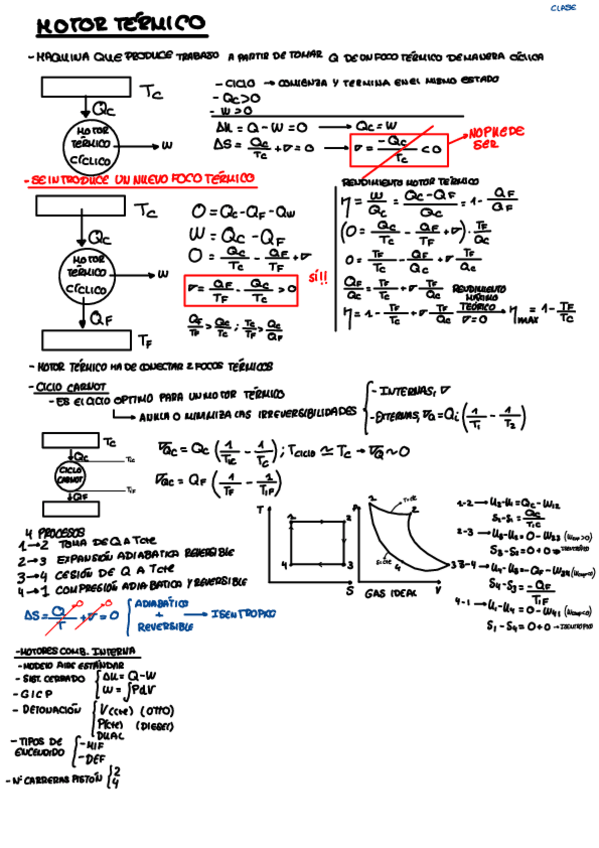 CLASE
MOTOR TÉRMICO
- MÁQUINA QUE PRODUCE TRABAJO A PARTIR DE TOMAR Q DE UN FOCO TÉRMICO DE MANERA CÍCLICA
Tc
Qc
MOTOR TÉRMICO CÍCLICO
W
- CICLO → COMIENZA Y TERMINA EN EL MISMO ESTADO
- Qc>0
- W>0
ΔU = Q - W = 0 → Qc = W
ΔS = Qc/Tc + σ = 0 → σ = -Qc/Tc < 0
NO PUEDE SER
- SE INTRODUCE UN NUEVO FOCO TÉRMICO
Tc
Qc
MOTOR TÉRMICO CÍCLICO
W
QF
TF
0 = Qc - QF - QW
W = Qc - QF
0 = Qc/Tc - QF/TF + σ
σ = QF/TF - Qc/Tc > 0
SÍ!!
QF/TF > Qc/Tc ; TF/Tc > Qc/QF
RENDIMIENTO MOTOR TÉRMICO
η = W/Qc = (Qc - QF)/Qc = 1 - QF/QF
(0 = Qc/Tc - QF/TF + σ) · TF/Qc
0 = TF/Tc - QF/Qc + σ TF/Qc
QF/Qc = TF/Tc + σ TF/Qc
η = 1 - TF/Tc - σ TF/Qc
RENDIMIENTO MÁXIMO TEÓRICO σ = 0
η MAX = 1 - TF/Tc
- MOTOR TÉRMICO HA DE CONECTAR 2 FOCOS TÉRMICOS
- CICLO CARNOT
- ES EL CICLO OPTIMO PARA UN MOTOR TÉRMICO
→ ANULA O MINIMIZA LAS IRREVERSIBILIDADES
- INTERNAS, σ
- EXTERNAS, σQ = Qi (1/T1 - 1/T2)
Tc
Qc
CICLO CARNOT
QF
σQc = Qc (1/T1c - 1/Tc) ; TCICLO ≃ Tc → σQ ~ 0
σQc = QF (1/TF - 1/T1F)
4 PROCESOS
1→2 TOMA DE Q A Tcte
2→3 EXPANSIÓN ADIABÁTICA REVERSIBLE
3→4 CESIÓN DE Q A Tcte
4→1 COMPRESIÓN ADIABATICA Y REVERSIBLE
T
1
2
4
3
S
1
2
4
3
GAS IDEAL
V
1-2 → U2-U1 = Qc - W12
S2-S1 = Qc/T1c
2-3 → U3-U2 = 0 - W23
S3-S2 = 0+0 → ISENTRÓPICO
3-4 → U4-U3 = -QF - W34
S4-S3 = -QF/T1F
4-1 → U1-U4 = 0 - W41
S1-S4 = 0+0 → ISENTRÓPICO
ΔS = Q/T + σ = 0
ADIABÁTICO + REVERSIBLE → ISENTRÓPICO
- MOTORES COMB. INTERNA
- MODELO AIRE ESTÁNDAR
- SIST. CERRADO
ΔU = Q - W
W = ∫PdV
- GICP
- DETONACIÓN
V(cte) (OTTO)
P(cte) (DIESEL)
DUAL
- TIPOS DE ENCENDIDO
- MIF
- DEF
- Nº CARRERAS PISTÓN
2
4